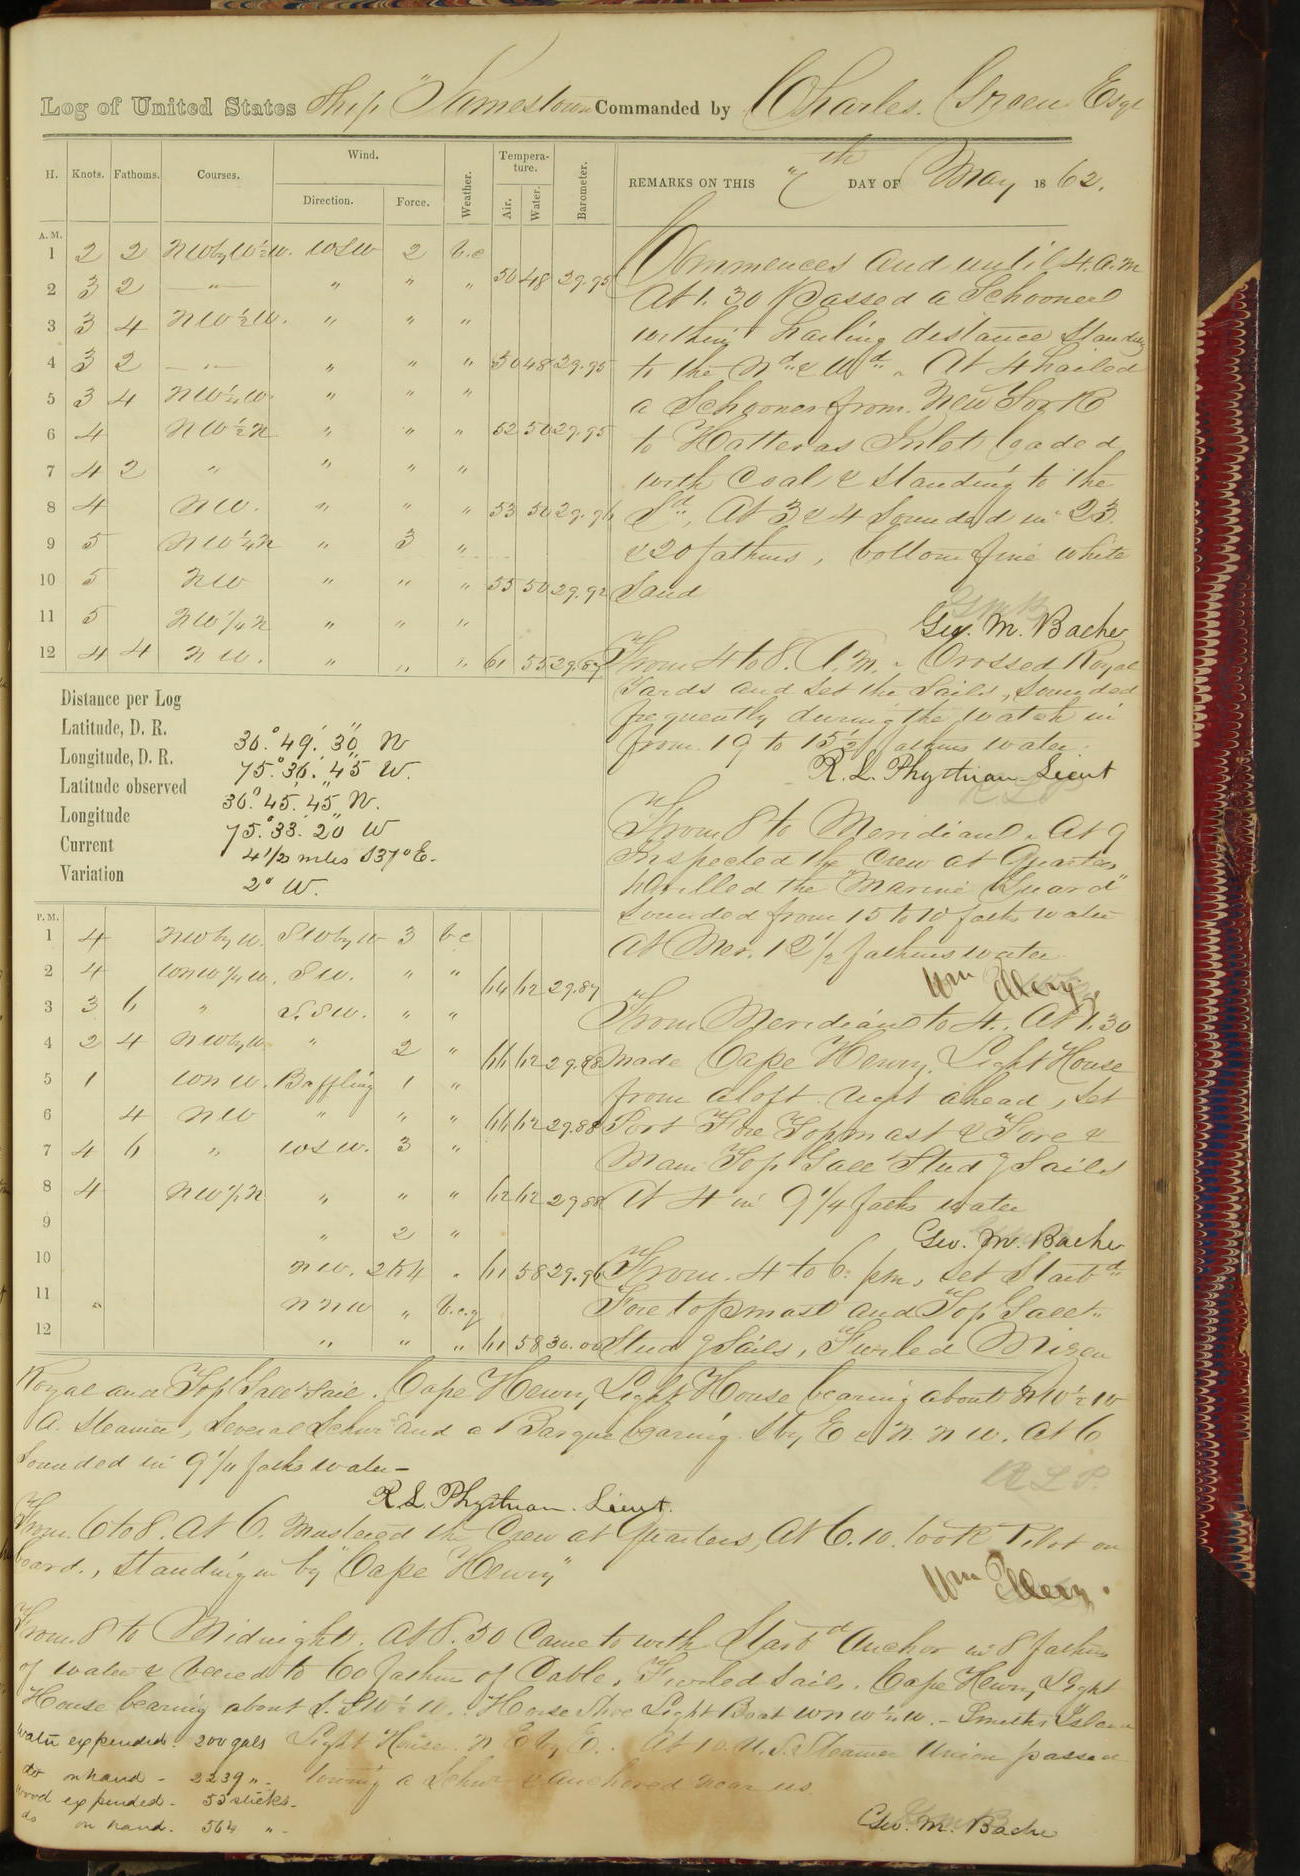 Log of United States Ship "Jamestown" Commanded by Charles Green Esqr
H. Knots. Fathoms. Courses. Wind. Direction. Force. Weather. Temperature. Air. Water. Barometer.
REMARKS ON THIS 7th DAY OF May 1862.
A.M.
1 2 2 NWbyW½W. WSW 2 b.c
2 3 2 " " " " 50 48 29.95
3 3 4 NW½W. " " "
4 3 2 " " " " 50 48 29.95
5 3 4 NW¼W. " " "
6 4 NW½N " " " 52 50 29.95
7 4 2 " " " "
8 4 NW. " " " 53 50 29.96
9 5 NW¼N " 3 "
10 5 NW " " " 55 50 29.92
11 5 NW¼N " " "
12 4 4 NW. " " " 61 55 29.87
Commences and until 4. a.m
At 1.30 Passed a Schooner
within hailing distance standing
to the Nd & Wd. At 4 hailed
a Schooner from New York
to Hatteras Inlet loaded
with Coal & standing to the
Sd. At 3 & 4 Sounded in 23
& 20 fathms, bottom fine white
Sand
Geo. M. Bache
From 4 to 8. A.M. Crossed Royal
Yards and set the Sails, sounded
frequently during the watch in
from 19 to 15½ fathms water.
R. L. Phythian Lieut
From 8 to Meridian. At 9
Inspected the Crew at Quarters
drilled the "Marine Guard"
Sounded from 15 to 10 faths water
At Mer. 12½ fathms water
Wm Ellery
Distance per Log
Latitude, D. R. 36° 49' 30" N
Longitude, D. R. 75° 36' 45" W.
Latitude observed 36° 45' 45" N.
Longitude 75° 33' 20" W
Current 4 1/2 miles S37°E.
Variation 2° W.
P.M.
1 4 NWbyW. SWbyW 3 b.c
2 4 WNW¼W. SW. " " 64 62 29.87
3 3 6 " S.SW. " "
4 2 4 NWbyW " 2 " 66 62 29.88
5 1 WNW. Baffling 1 "
6 4 NW " " " 66 62 29.88
7 4 6 " WSW. 3 "
8 4 NW½N " " " 62 62 29.88
9 " 2 "
10 NW. 2 to 4 " 61 58 29.96
11 NNW " b.c.q
12 " " " 61 58 30.00
From Meridian to 4. At 1.30
made Cape Henry Light House
from aloft right ahead, set
Port Fore Topmast & Fore &
Main Top Gall't Studg Sails
At 4 in 9¼ faths water
Geo. M. Bache
From 4 to 6. pm, set Starbd
Fore topmast and Top Gallt
Studg Sails, Furled Mizen
Royal and Top Gall't Sail. Cape Henry Light House bearing about NW½W
A Steamer, several Schrs and a Barque bearing S by E & N.N.W. At 6
Sounded in 9¼ faths water—
R. L. P.
R. L. Phythian. Lieut.
From 6 to 8. At 6. Mustered the Crew at Quarters, At 6.10. took Pilot on
board, standing in by "Cape Henry"
Wm Ellery.
From 8 to Midnight. At 8.50 Came to with Starbd Anchor in 8 fathms
of water & veered to 60 fathms of Cable, Furled sails. Cape Henry Light
House bearing about S. SW½W. Horse Shoe Light Boat WNW½W. — Smiths Island
Light House. N E by E. At 10. U.S. Steamer Union passed
towing a Schr & anchored near us
Water expended. 200 gals
do on hand - 2239 "
Wood expended - 53 sticks
do on hand. 564 "
Geo. M. Bache